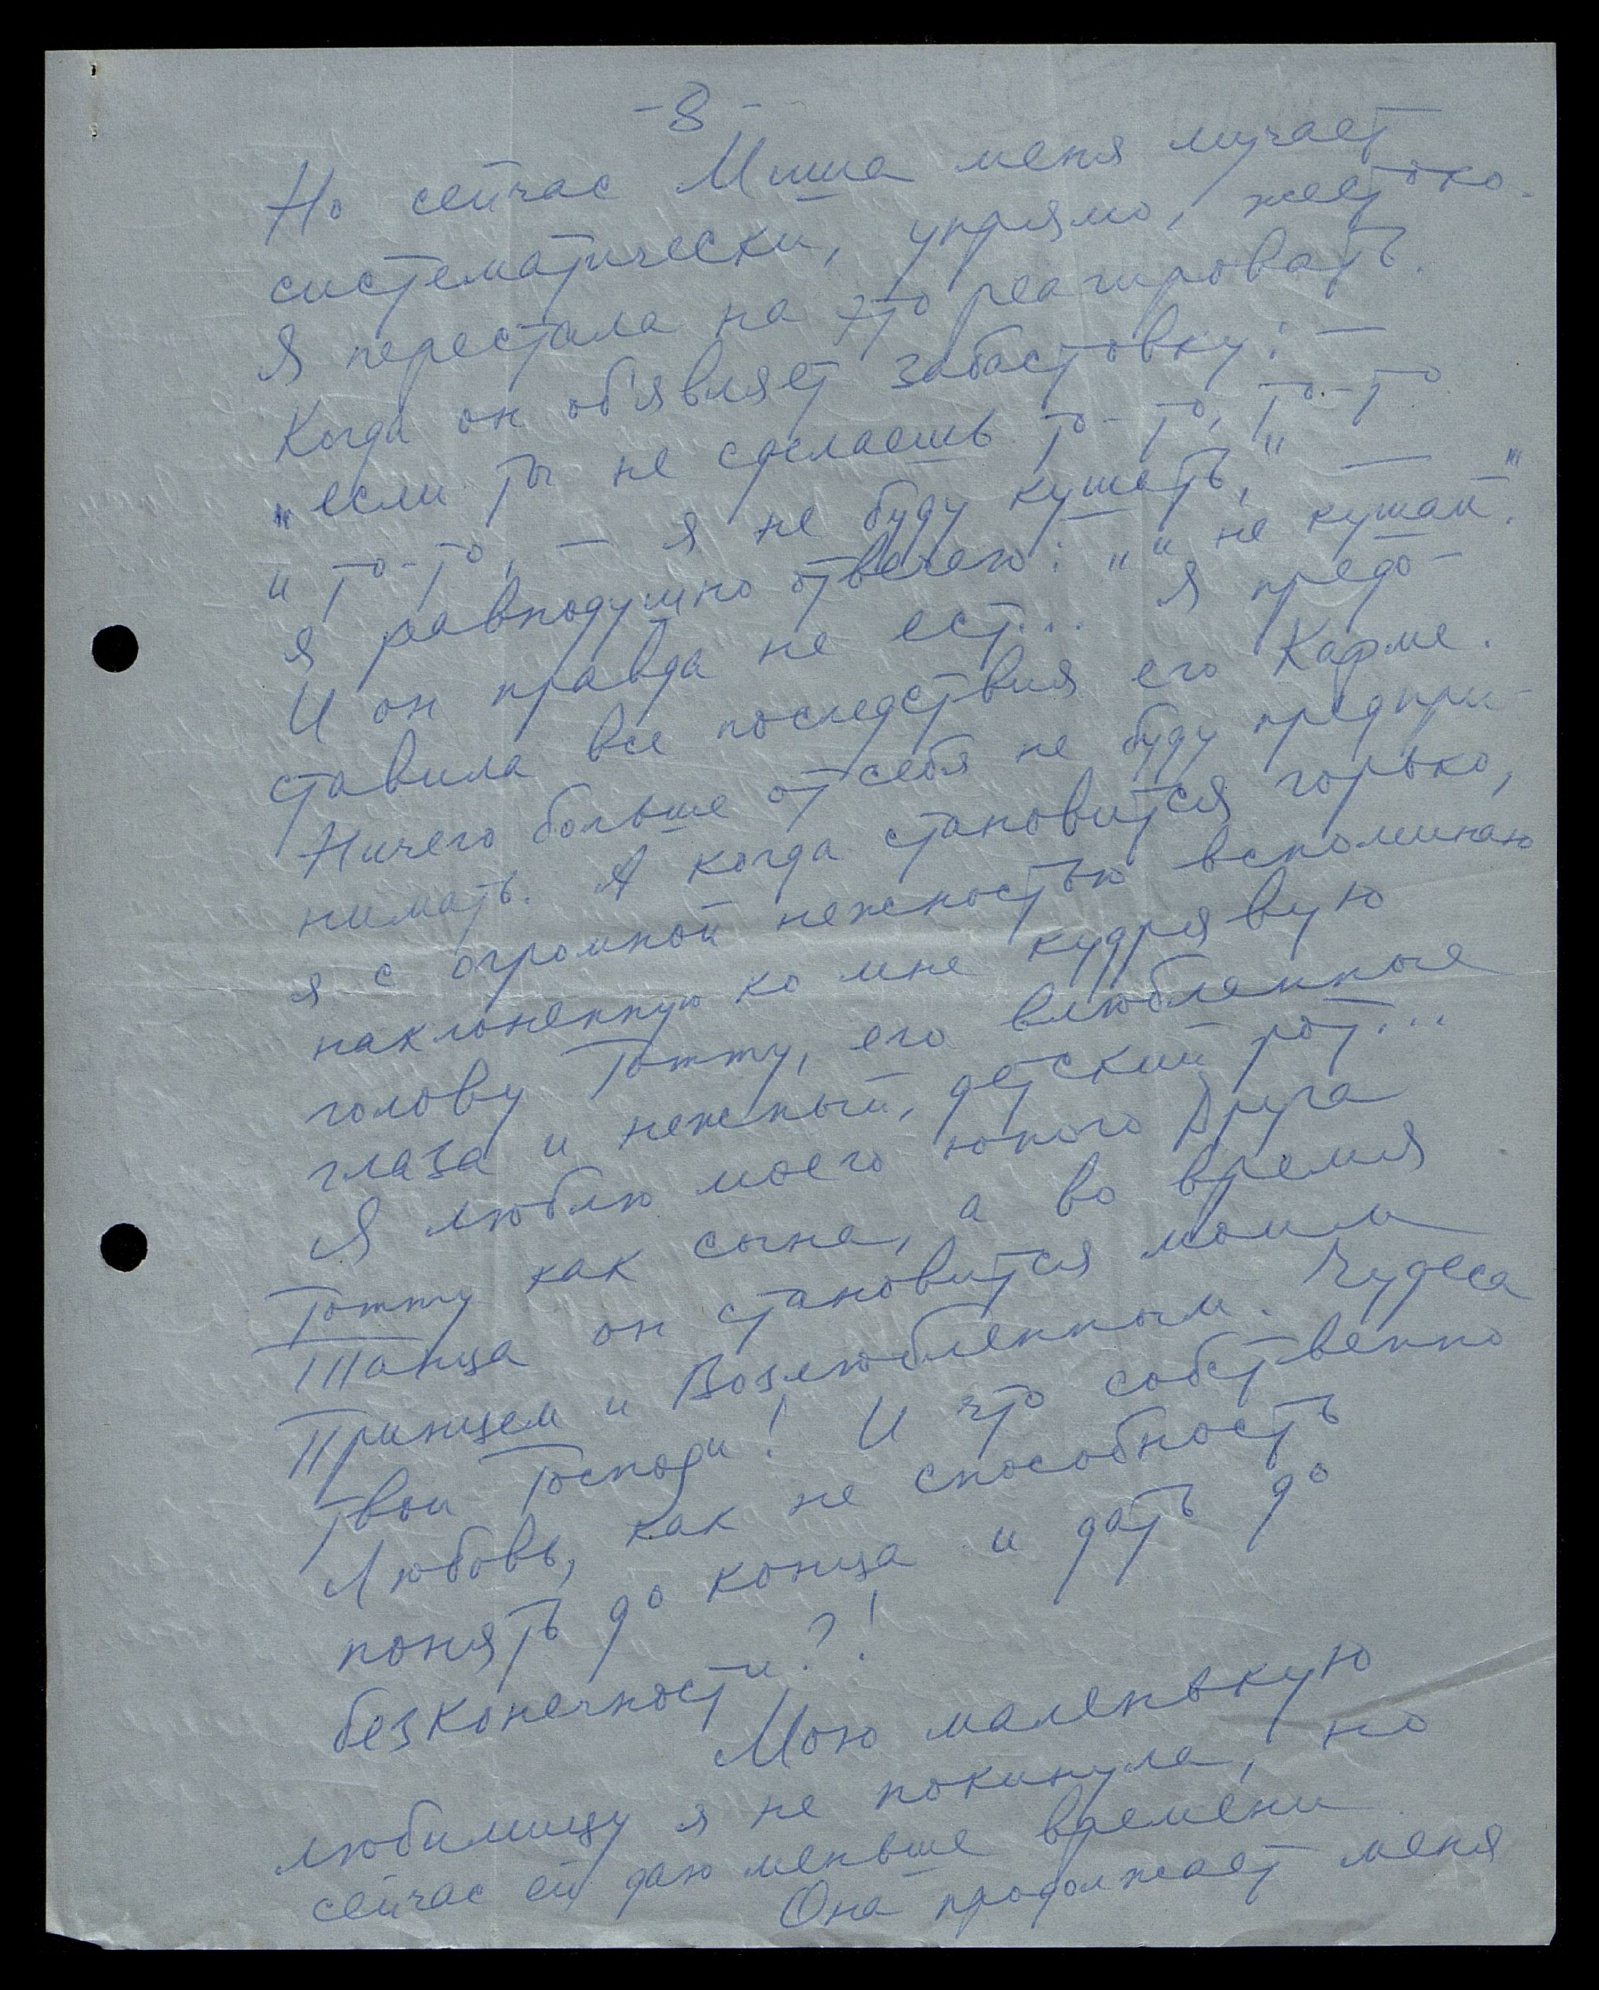 -8-
Но сейчас Миша меня мучает
систематически, упрямо, жестоко.
Я перестала на это реагировать.
Когда он об'являет забастовку: —
„если ты не сделаешь то-то, то-то
и то-то, — я не буду кушать," —
я равнодушно отвечаю: „не кушай."
И он правда не ест... Я предо-
ставила все последствия его Карме.
Ничего больше от себя не буду предпри-
нимать. А когда становится горько,
я с огромной нежностью вспоминаю
наклоненную ко мне кудрявую
голову Томту, его влюбленные
глаза и нежный, детский рот...
Я люблю моего юного Друга
Томту как сына, а во время
Танца он становится моим
Принцем и Возлюбленным. Чудеса
Твои Господи! И что собственно
Любовь, как не способность
понять до конца и дать до
безконечности?!
Мою маленькую
любимицу я не покинула, но
сейчас ей даю меньше времени
Она продолжает меня